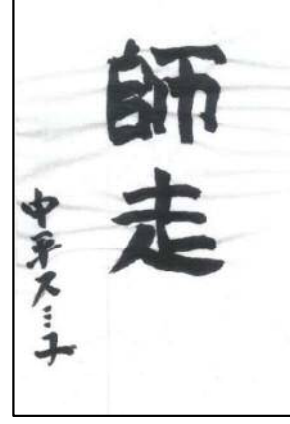 師走
中平スミ子